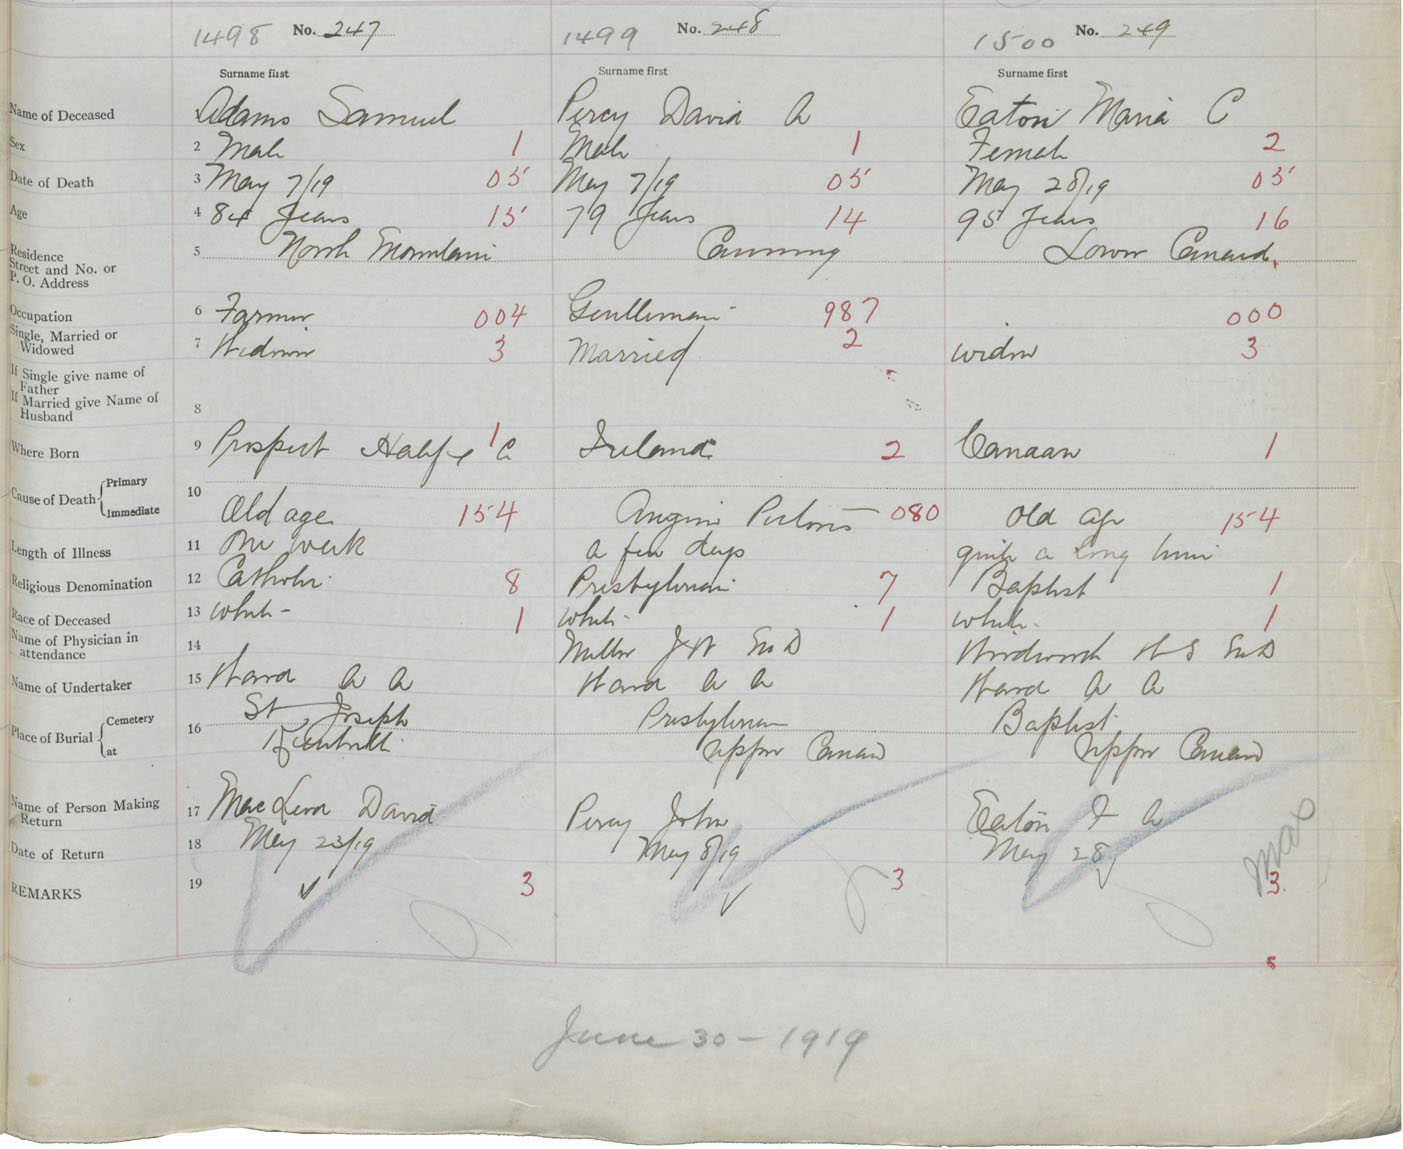 1498 No. 247 1499 No. 248 1500 No. 249
Surname first Surname first Surname first
Name of Deceased 1 Adams Samuel Percy David A Eaton Maria C
Sex 2 Male 1 Male 1 Female 2
Date of Death 3 May 7/19 05 May 7/19 05 May 28/19 05
Age 4 84 Years 15 79 Years 14 95 Years 16
Residence
Street and No. or
P. O. Address 5 North Mountain Canning Lower Canard
Occupation 6 Farmer 004 Gentleman 987 000
Single, Married or
Widowed 7 Widower 3 Married 2 widow 3
If Single give name of
Father
If Married give Name of
Husband 8
Where Born 9 Prospect Halifax C 1 Ireland 2 Canaan 1
Cause of Death Primary 10
Immediate Old age 154 Angina Pectoris 080 Old age 154
Length of Illness 11 One week a few days quite a long time
Religious Denomination 12 Catholic 8 Presbyterian 7 Baptist 1
Race of Deceased 13 white 1 white 1 white 1
Name of Physician in
attendance 14 Miller J W M D H S M D
Name of Undertaker 15 Ward A A Ward A A Ward A A
Place of Burial Cemetery 16 St Joseph Presbyterian Baptist
at Kentville Upper Canard Upper Canard
Name of Person Making
Return 17 MacLeod David Percy John Eaton F A
Date of Return 18 May 23/19 May 8/19 May 28
REMARKS 19 3 3 3
June 30 - 1919